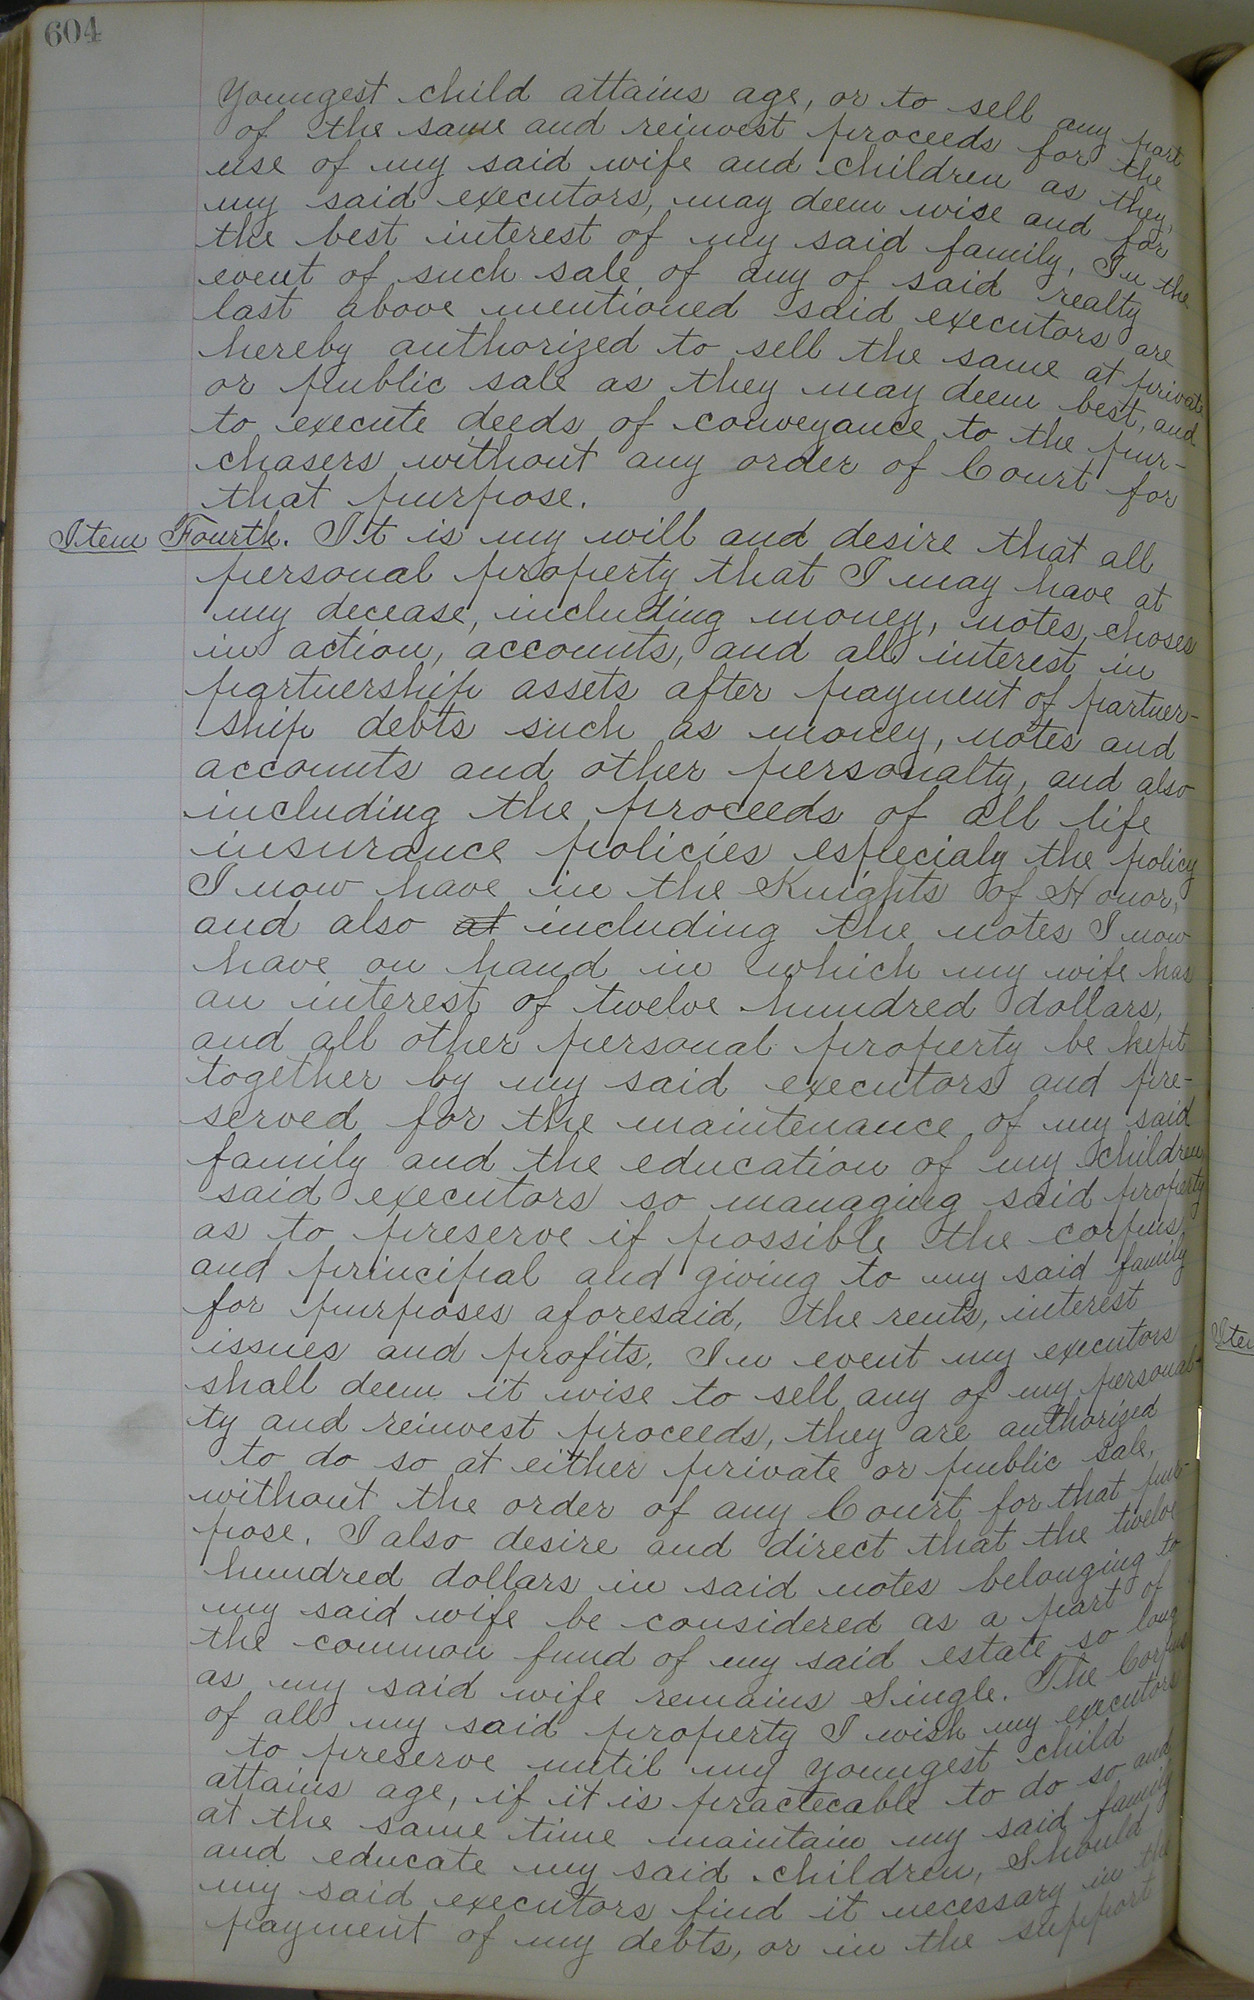 604
Youngest child attains age, or to sell any part
of the same and reinvest proceeds for the
use of my said wife and children as they,
my said executors, may deem wise and for
the best interest of my said family, In the
event of such sale of any of said realty
last above mentioned said executors are
hereby authorized to sell the same at private
or public sale as they may deem best, and
to execute deeds of conveyance to the pur-
chasers without any order of Court for
that purpose.
Item Fourth. It is my will and desire that all
personal property that I may have at
my decease, including money, notes, choses
in action, accounts, and all interest in
partnership assets after payment of partner-
ship debts such as money, notes and
accounts and other personalty, and also
including the proceeds of all life
insurance policies especialy the policy
I now have in the Knights of Honor,
and also at including the notes I now
have on hand in which my wife has
an interest of twelve hundred dollars,
and all other personal property be kept
together by my said executors and pre-
served for the maintenance of my said
family and the education of my children
said executors so managing said property
as to preserve if possible the corpus
and principal and giving to my said family
for purposes aforesaid, the rents, interest
issues and profits. In event my executors
shall deem it wise to sell any of my personal-
ty and reinvest proceeds, they are authorized
to do so at either private or public sale,
without the order of any Court for that pur-
pose. I also desire and direct that the twelve
hundred dollars in said notes belonging to
my said wife be considered as a part of
the common fund of my said estate so long
as my said wife remains Single. The Corpus
of all my said property I wish my executors
to preserve until my youngest child
attains age, if it is practecable to do so and
at the same time maintain my said family
and educate my said children, Should
my said executors find it necessary in the
payment of my debts, or in the support
Iten